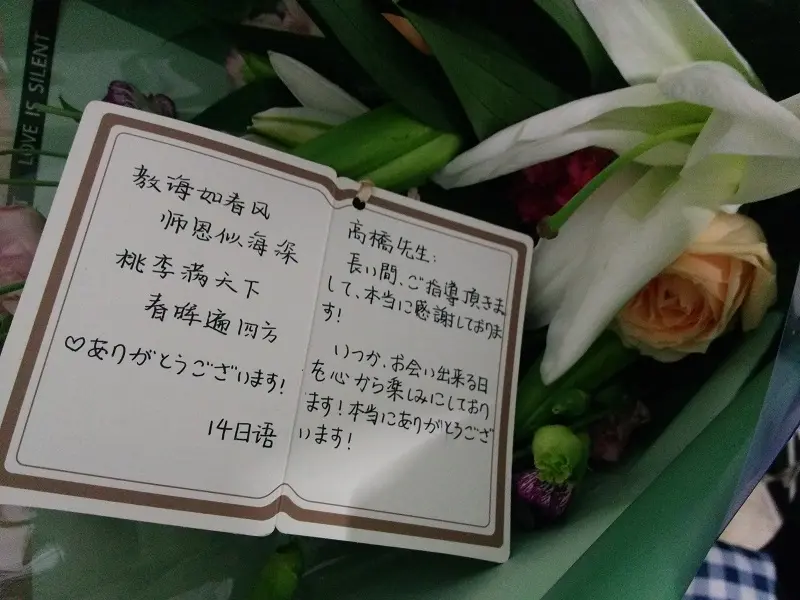 LOVE IS SILENT
教海如春风
师恩似海深
桃李满天下
春晖遍四方
♡ありがとうございます!
14日语
高橋先生:
長い間、ご指導頂きま
して、本当に感謝しておりま
す!
いつか、お会い出来る日
を心から楽しみにしており
ます!本当にありがとうござ
います!